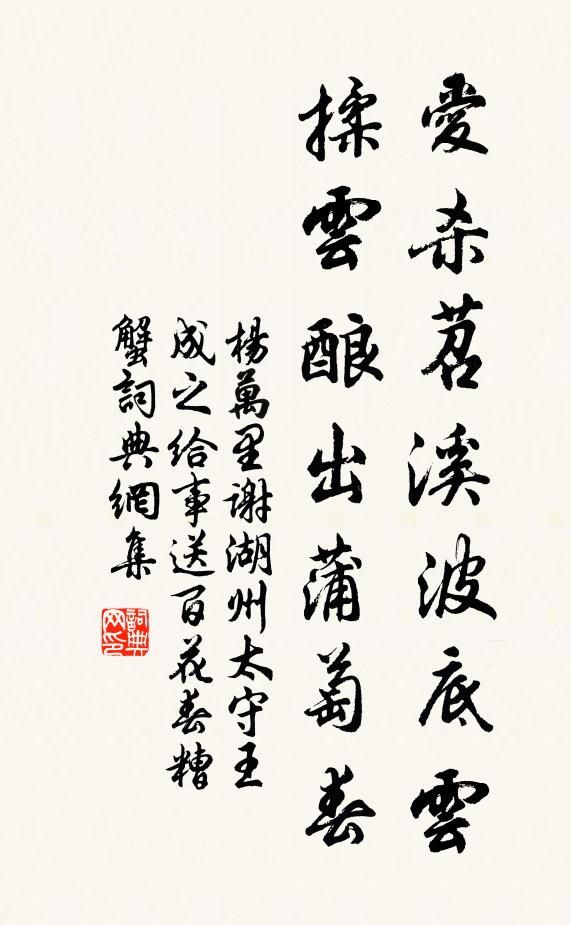 愛杀苕溪波底雲
揉雲酿出蒲萄春
楊萬里谢湖州太守王
成之给事送百花春糟
蟹詞典網集
詞典
网印